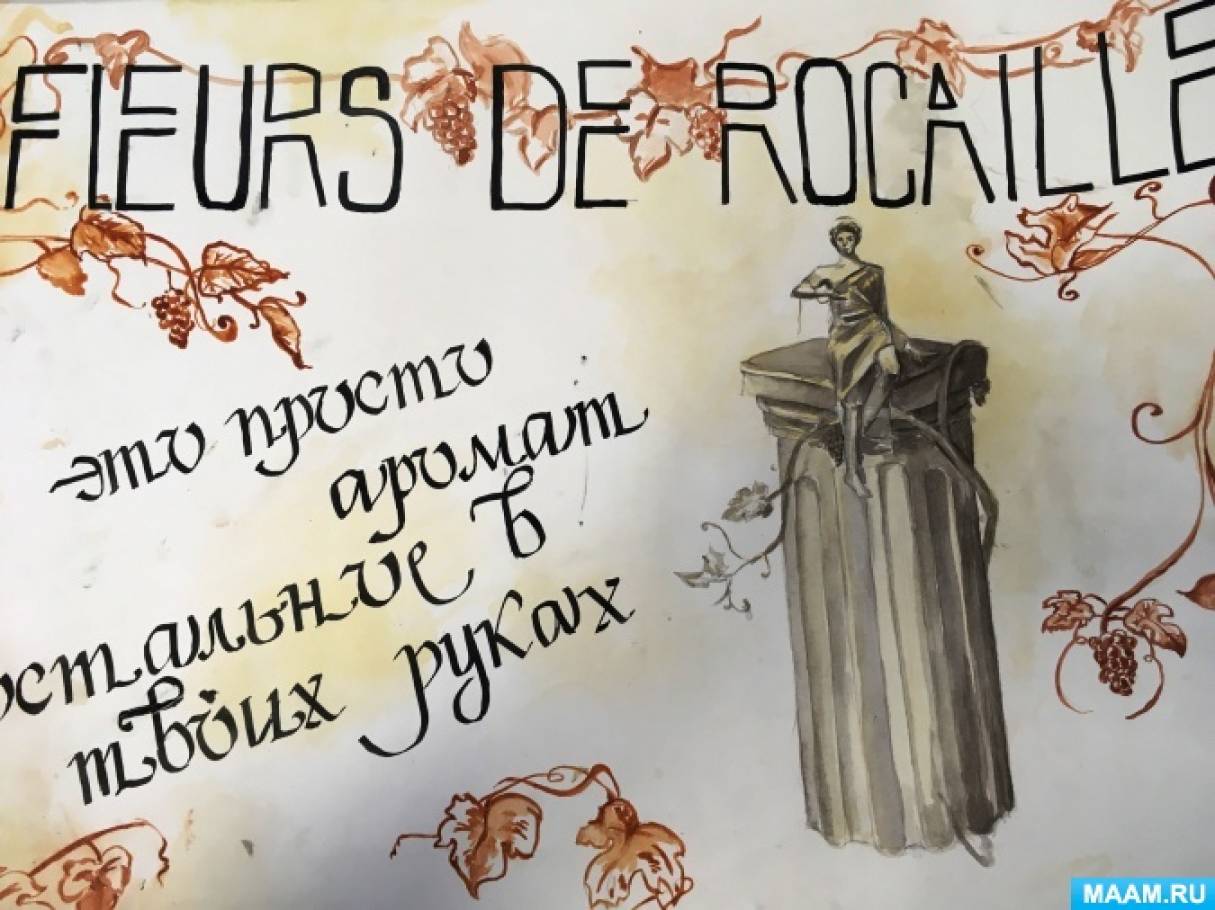 FLEURS DE ROCAILLE
-это просто
аромат
остальное в
твоих руках
MAAM.RU